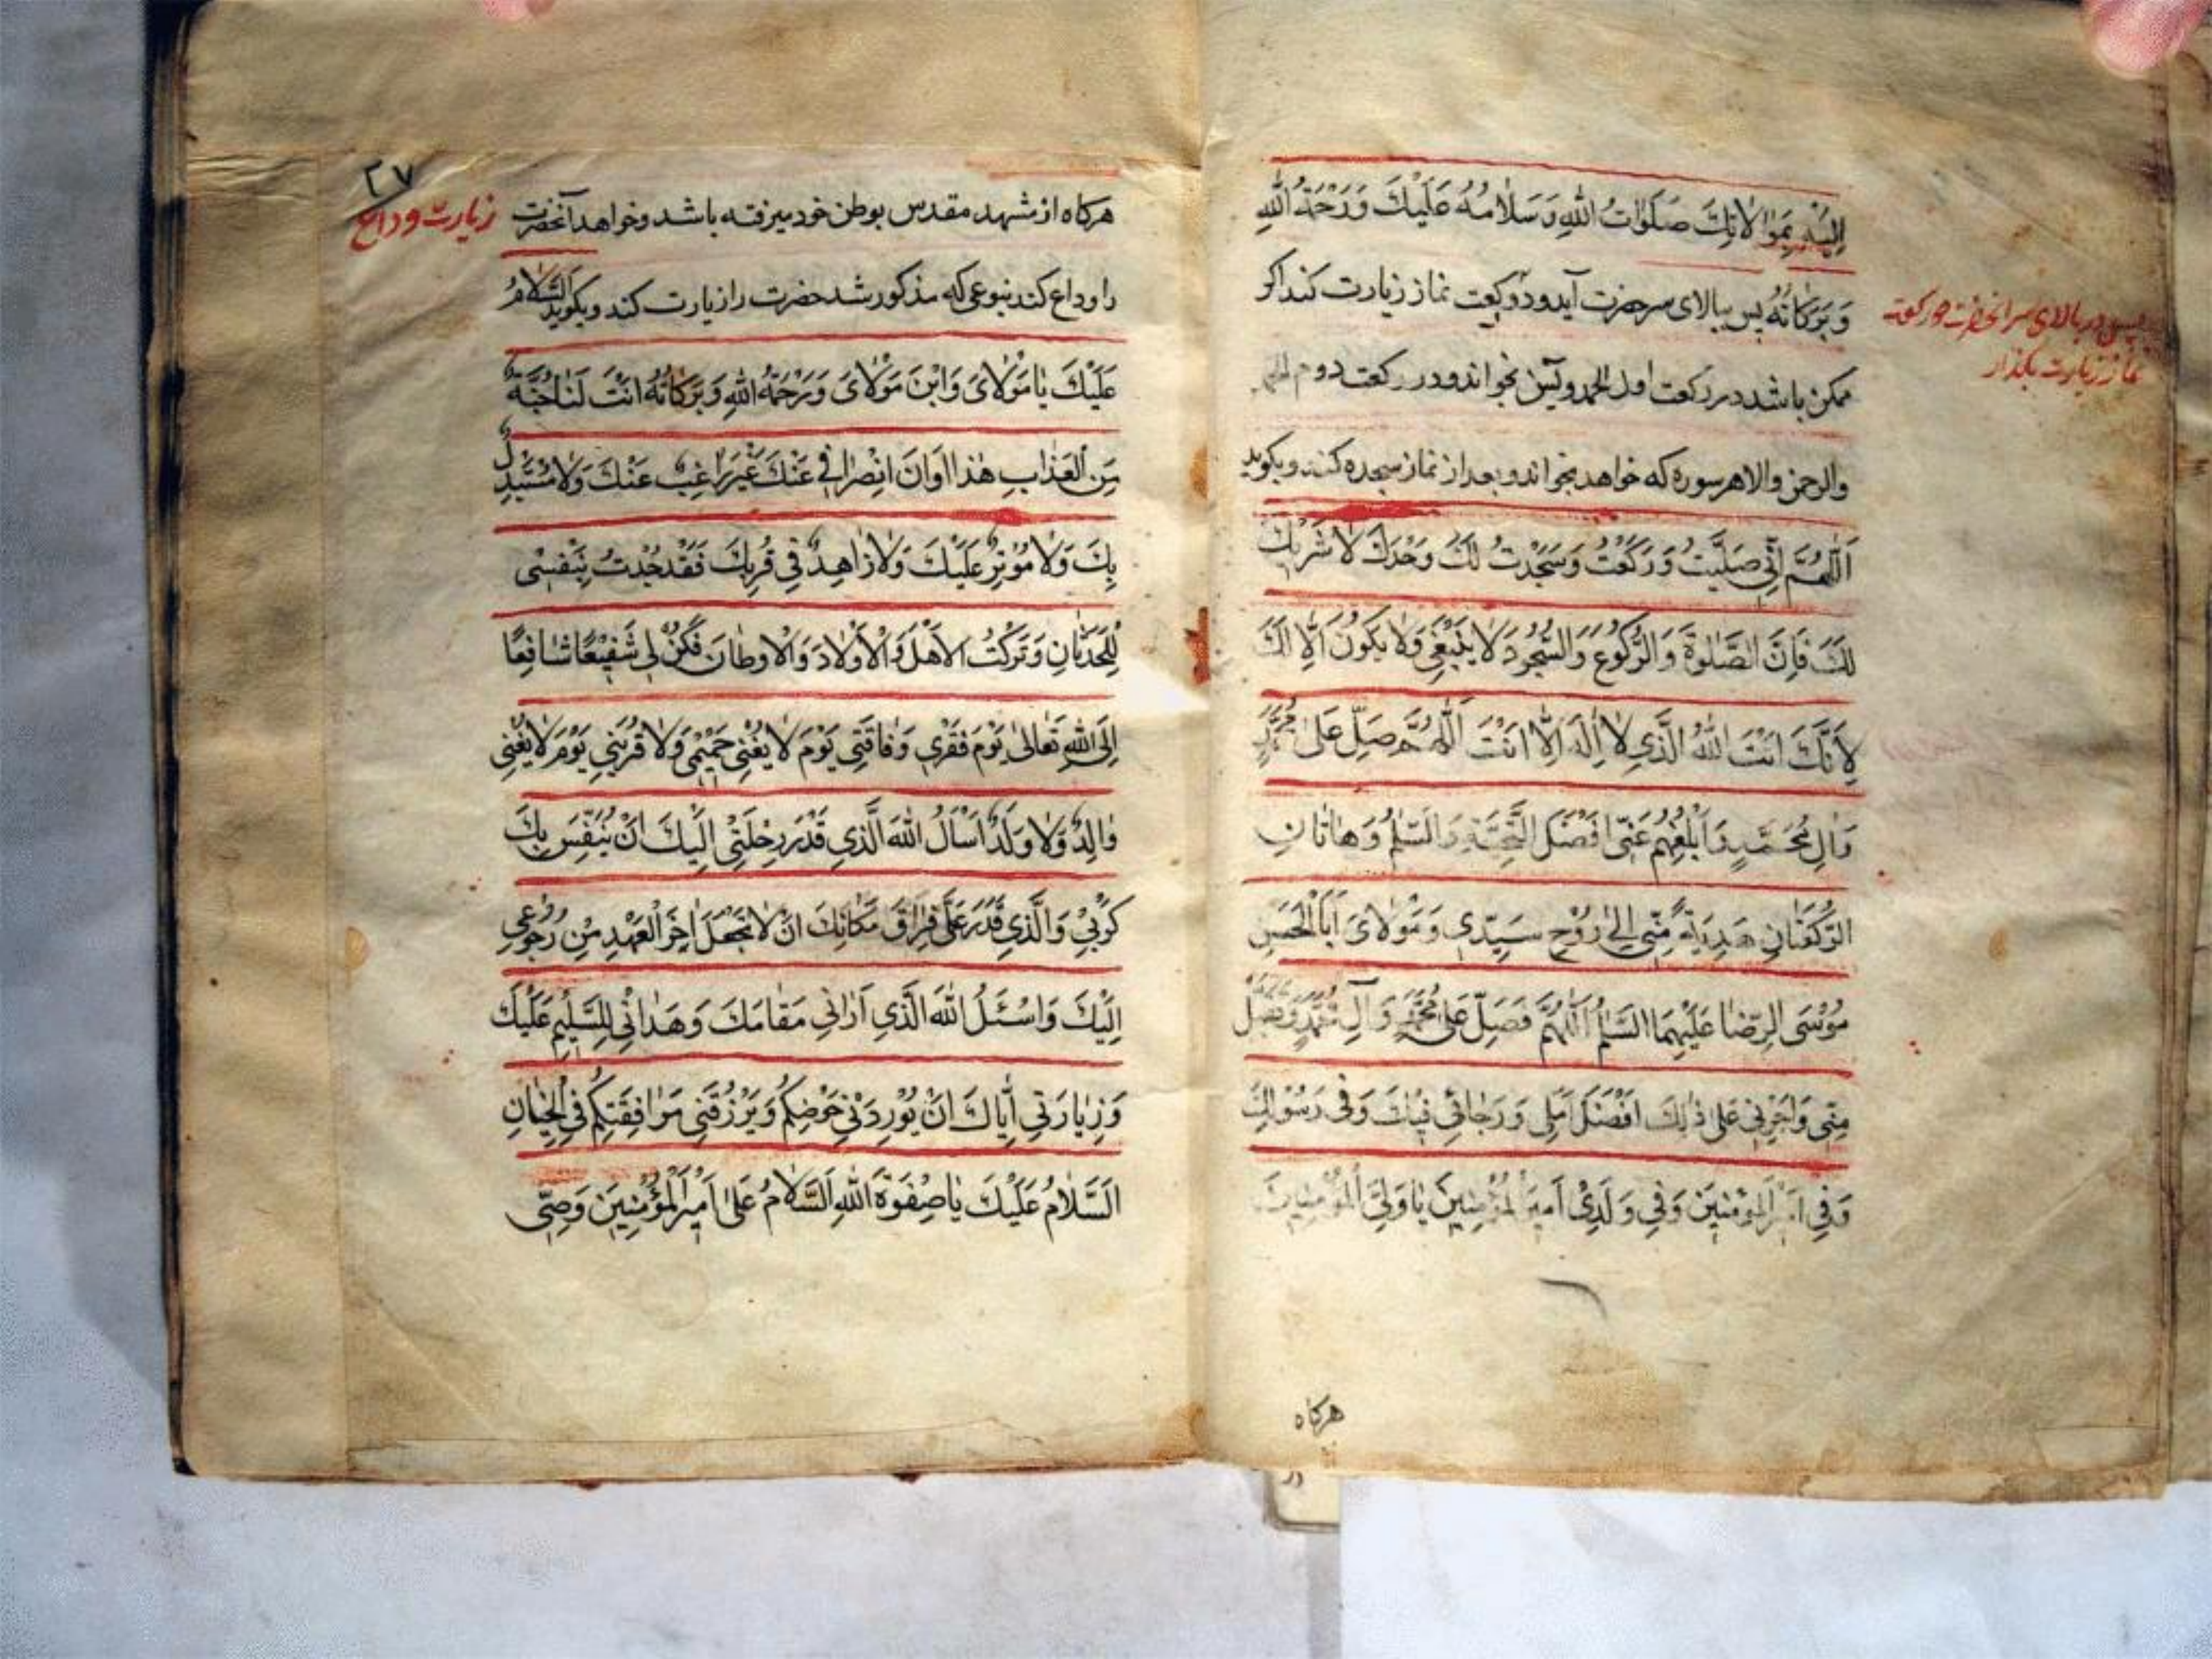 اِلَيْهِ بِمُوالاتِكَ صَلَواتُ اللهِ وَسَلامُهُ عَلَيْكَ وَرَحْمَةُ اللهِ
وَبَرَكاتُهُ پس ببالای سر حضرت آید و دو رکعت نماز زیارت کند اگر
پس در بالای سر آنحضرت دو رکعت
نماز زیارت بگذار
ممکن باشد در رکعت اول الحمد و یس بخواند و در رکعت دوم الحمد
والرحمن والا هر سوره که خواهد بخواند و بعد از نماز سجده کند و بگوید
اَللّهُمَّ اِنّي صَلَّيْتُ وَرَكَعْتُ وَسَجَدْتُ لَكَ وَحْدَكَ لا شَرِيكَ
لَكَ فَاِنَّ الصَّلوةَ وَالرُّكُوعَ وَالسُّجُودَ لا يَنْبَغي وَلا يَكُونُ اِلّا لَكَ
لِاَنَّكَ اَنْتَ اللهُ الَّذي لا اِلهَ اِلّا اَنْتَ اَللّهُمَّ صَلِّ عَلى مُحَمَّدٍ
وَالِ مُحَمَّدٍ وَاَبْلِغْهُمْ عَنّي اَفْضَلَ التَّحِيَّةِ وَالسَّلمُ وَهاتانِ
الرَّكْعَتانِ هَدِيَّةٌ مِنّي اِلى رُوْحِ سَيِّدي وَمَوْلايَ اَبَا الْحَسَنِ
مُوْسَى الرِّضا عَلَيْهِمَا السَّلمُ اَللّهُمَّ فَصَلِّ عَلى مُحَمَّدٍ وَآلِ مُحَمَّدٍ وَتَقَبَّلْ
مِنّي وَاجْزِني عَلى ذلِكَ اَفْضَلَ اَمَلي وَرَجائي فيكَ وَفي رَسُوْلِكَ
وَفي اَميرِ الْمُؤْمِنينَ وَفي وَلَدَيْ اَميرِ الْمُؤْمِنينَ يا وَلِيَّ الْمُؤْمِنينَ
هرکاه
۲۷
زیارت وداع
هرکاه از مشهد مقدس بوطن خود میرفته باشد و خواهد آنحضرت
را وداع کند بنوعی که مذکور شد حضرت را زیارت کند و بگوید اَلسَّلامُ
عَلَيْكَ يا مَوْلايَ وَابْنَ مَوْلايَ وَرَحْمَةُ اللهِ وَبَرَكاتُهُ اَنْتَ لَنا جُنَّةٌ
مِنَ الْعَذابِ هٰذا اَوانَ انْصِرافي عَنْكَ غَيْرَ راغِبٍ عَنْكَ وَلا مُسْتَبْدِلٍ
بِكَ وَلا مُؤْثِرٍ عَلَيْكَ وَلا زاهِدٍ في قُرْبِكَ فَقَدْ جُدْتُ بِنَفْسي
لِلْحَدَثانِ وَتَرَكْتُ الْاَهْلَ وَالْاَوْلادَ وَالْاَوْطانَ فَكُنْ لي شَفيعًا شافِعًا
اِلَى اللهِ تَعالى يَوْمَ فَقْري وَفاقَتي يَوْمَ لا يُغْني حَميمي وَلا قَريني يَوْمَ لا يُغْني
والِدٌ وَلا وَلَدٌ اَسْاَلُ اللهَ الَّذي قَدَّرَ رِحْلَتي اِلَيْكَ اَنْ يُنَفِّسَ بِكَ
كَرْبي وَالَّذي قَدَّرَ عَلَيَّ فِراقَ مَكانِكَ اَنْ لا تَجْعَلَ اخِرَ الْعَهْدِ مِنْ رُجُوعي
اِلَيْكَ وَاَسْئَلُ اللهَ الَّذي اَراني مَقامَكَ وَهَداني لِلتَّسْليمِ عَلَيْكَ
وَزِيارَتي اِيّاكَ اَنْ يُوْرِدَني حَوْضَكُمْ وَيَرْزُقَني مُرافَقَتَكُمْ فِي الْجِنانِ
اَلسَّلامُ عَلَيْكَ يا صِفْوَةَ اللهِ اَلسَّلامُ عَلى اَميرِ الْمُؤْمِنينَ وَصِيِّ